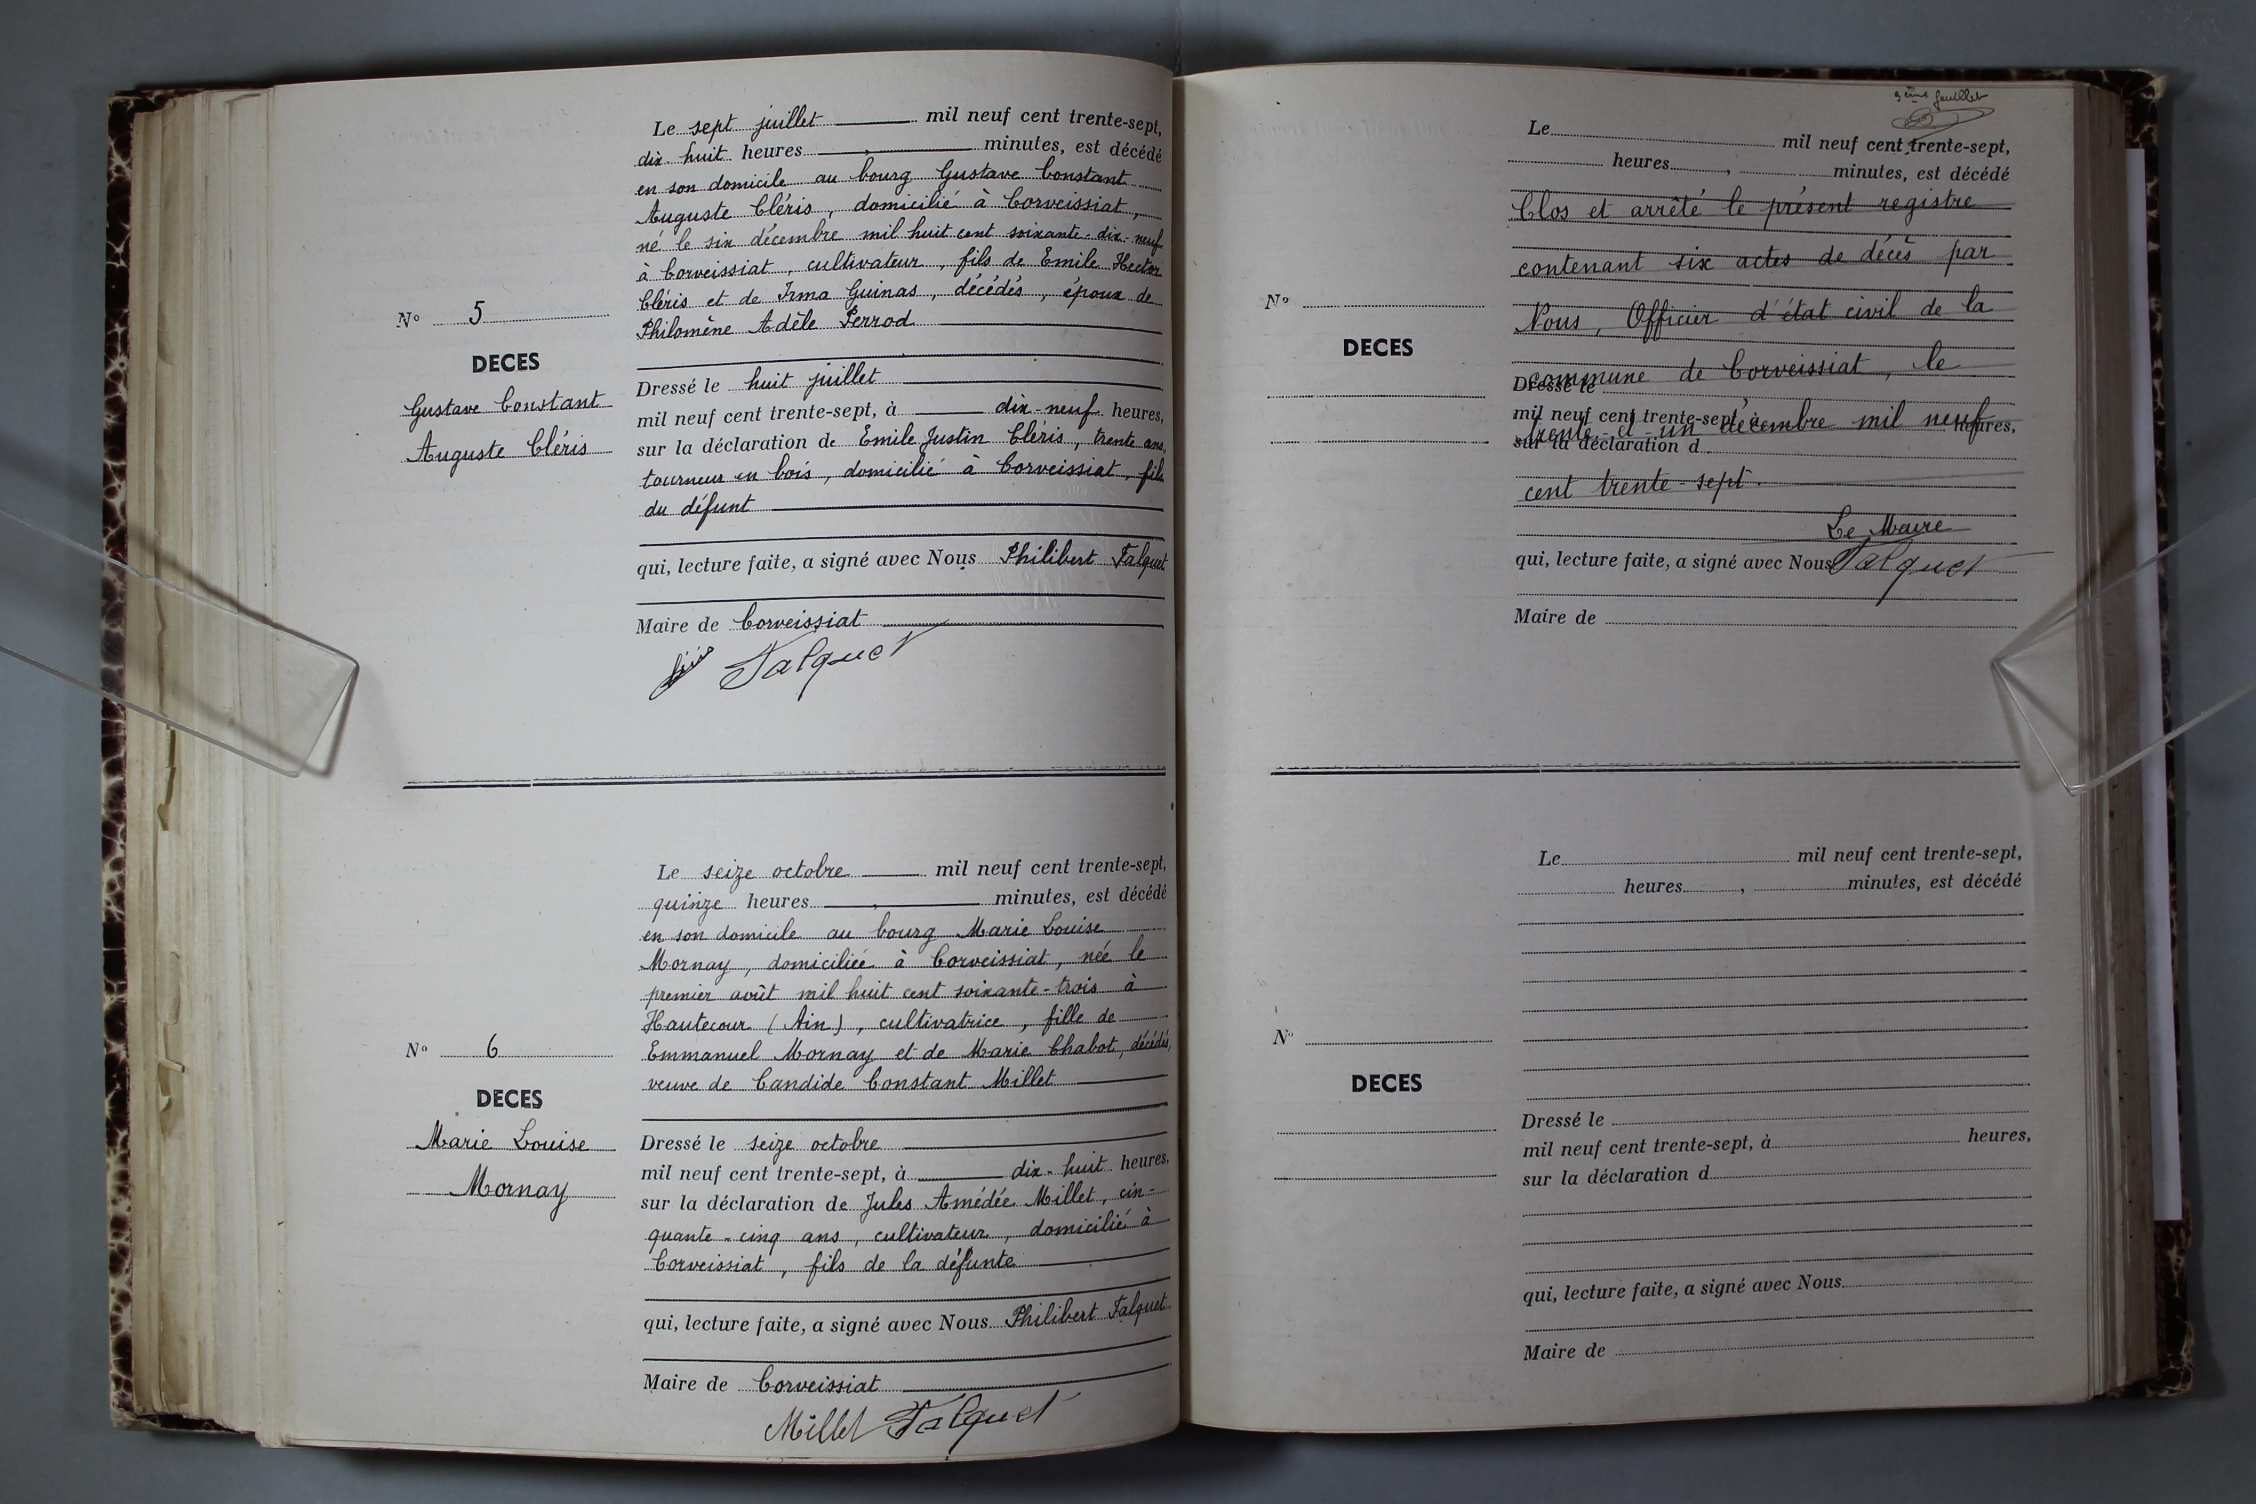 Le sept juillet mil neuf cent trente-sept,
dix-huit heures , minutes, est décédé
en son domicile au bourg Gustave Constant
Auguste Cléris, domicilié à Corveissiat,
né le six décembre mil huit cent soixante-dix-neuf
à Corveissiat, cultivateur, fils de Emile Hector
Cléris et de Irma Guinas, décédés, époux de
Philomène Adèle Perrod
N° 5
DECES
Gustave Constant
Auguste Cléris
Dressé le huit juillet
mil neuf cent trente-sept, à dix-neuf heures,
sur la déclaration de Emile Justin Cléris, trente ans,
tourneur en bois, domicilié à Corveissiat, fils
du défunt
qui, lecture faite, a signé avec Nous Philibert Falquet
Maire de Corveissiat
Falquet
Le seize octobre mil neuf cent trente-sept,
quinze heures , minutes, est décédé
en son domicile au bourg Marie Louise
Mornay, domiciliée à Corveissiat, née le
premier août mil huit cent soixante-trois à
Hautecour (Ain), cultivatrice, fille de
Emmanuel Mornay et de Marie Chabot, décédés,
veuve de Candide Constant Millet
N° 6
DECES
Marie Louise
Mornay
Dressé le seize octobre
mil neuf cent trente-sept, à dix-huit heures,
sur la déclaration de Jules Amédée Millet, cin-
quante-cinq ans, cultivateur, domicilié à
Corveissiat, fils de la défunte
qui, lecture faite, a signé avec Nous Philibert Falquet
Maire de Corveissiat
Millet Falquet
3ème feuillet
Le mil neuf cent trente-sept,
heures , minutes, est décédé
Clos et arrêté le présent registre
contenant six actes de décès par
Nous, Officier d'état civil de la
N°
DECES
commune de Corveissiat, le
Dressé le
mil neuf cent trente-sept, à heures,
trente-et-un décembre mil neuf
sur la déclaration d
cent trente-sept.
Le Maire
qui, lecture faite, a signé avec Nous
Falquet
Maire de
Le mil neuf cent trente-sept,
heures , minutes, est décédé
N°
DECES
Dressé le
mil neuf cent trente-sept, à heures,
sur la déclaration d
qui, lecture faite, a signé avec Nous
Maire de